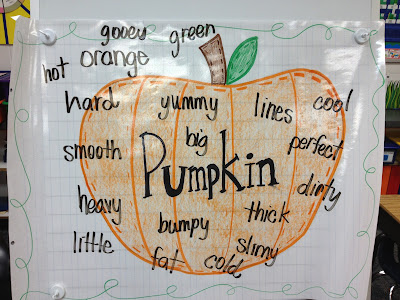 gooey green
hot orange
hard yummy lines cool
smooth big perfect
Pumpkin
heavy bumpy thick dirty
little fat cold slimy